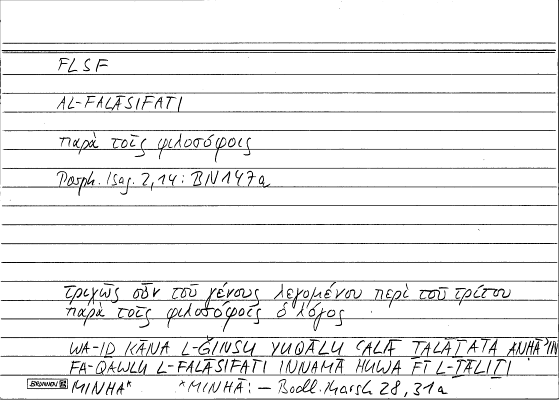 FLSF
AL-FALĀSIFATI
παρὰ τοῖς φιλοσόφοις
Porph. Isag. 2,14: BN147a
τριχῶς οὖν τοῦ γένους λεγομένου περὶ τοῦ τρίτου
παρὰ τοῖς φιλοσόφοις ὁ λόγος
WA-ID KĀNA L-ĞINSU YUQĀLU ʿALĀ TALĀTATA ANḤĀʾIN
FA-QAWLU L-FALĀSIFATI INNAMĀ HUWA FĪ L-TĀLITI
BRUNNEN MINHA* *MINHĀ: – Bodl. Marsh 28, 31a